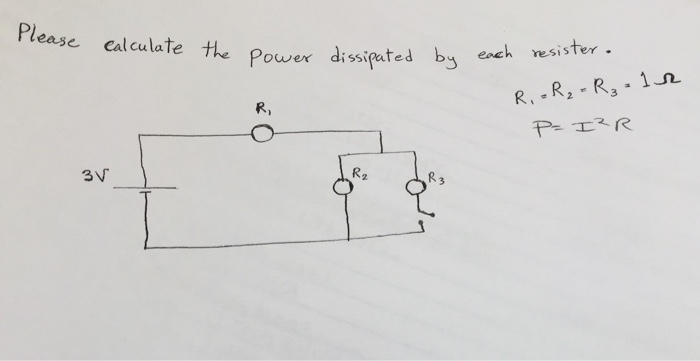 Please calculate the power dissipated by each resister.
R₁ = R₂ = R₃ = 1Ω
P = I²R
R₁
3V
R₂
R₃